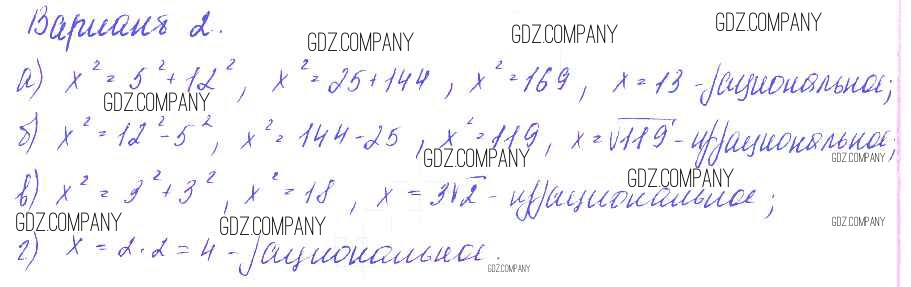 Вариант 2.
GDZ.COMPANY GDZ.COMPANY GDZ.COMPANY
а) x² = 5² + 12², x² = 25 + 144, x² = 169, x = 13 - рациональное;
GDZ.COMPANY
б) x² = 12² - 5², x² = 144 - 25, x² = 119, x = √119 - иррациональное;
GDZ.COMPANY GDZ.COMPANY
в) x² = 3² + 3², x² = 18, x = 3√2 - иррациональное;
GDZ.COMPANY
GDZ.COMPANY GDZ.COMPANY GDZ.COMPANY
г) x = 2·2 = 4 - рациональное.
GDZ.COMPANY